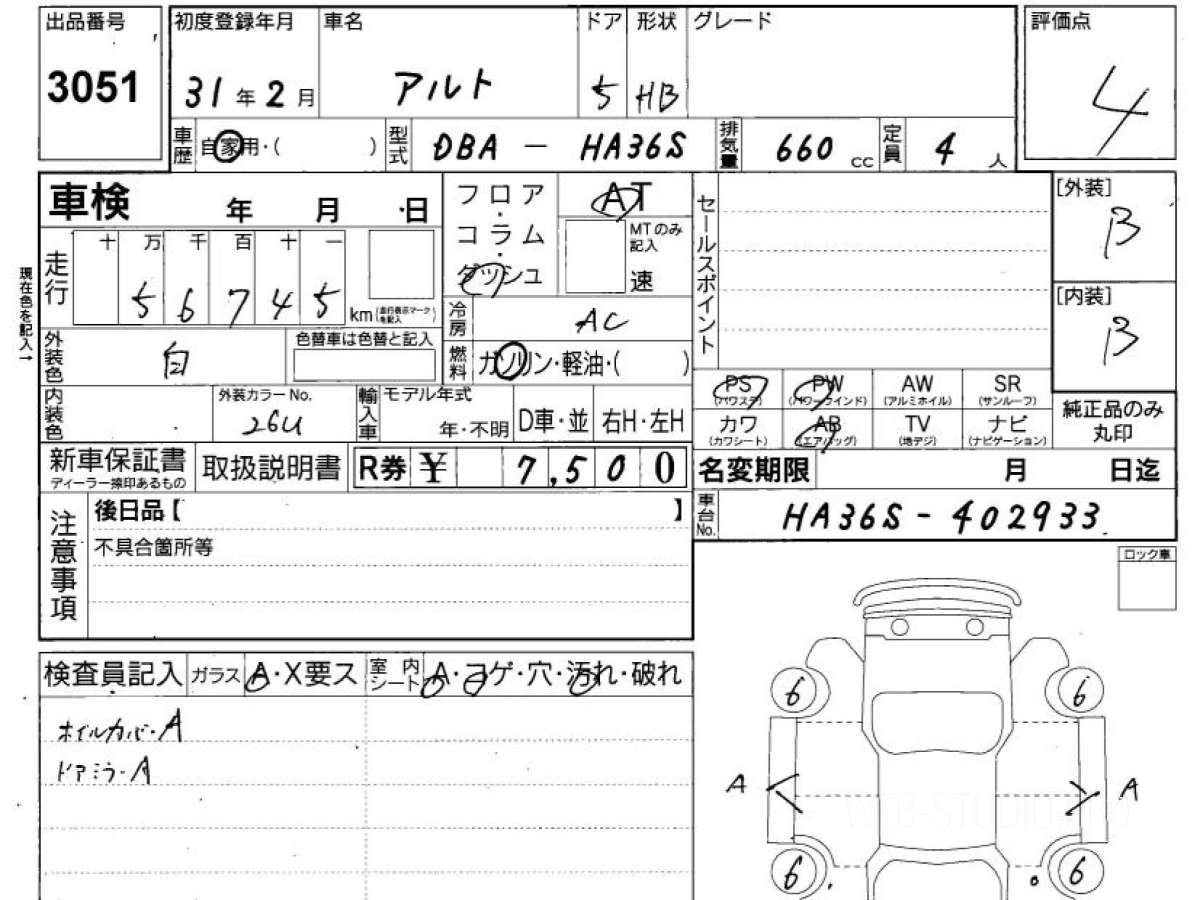 出品番号 初度登録年月 車名 ドア 形状 グレード 評価点
3051 31年2月 アルト 5 HB 4
車歴 自家用・( ) 型式 DBA - HA36S 排気量 660cc 定員 4人
車検 年 月 日 フロア・コラム・ダッシュ AT セールスポイント [外装] B
MTのみ記入 速
現在色を記入→
走行 十 万 千 百 十 一
5 6 7 4 5 km(走行表示マークを記入) 冷房 AC [内装] B
外装色 白 色替車は色替と記入 燃料 ガソリン・軽油・( )
PS (パワステ) PW (パワーウインド) AW (アルミホイル) SR (サンルーフ)
内装色 外装カラーNo. 26U 輸入車 モデル年式 年・不明 D車・並 右H・左H
カワ (カワシート) AB (エアバッグ) TV (地デジ) ナビ (ナビゲーション) 純正品のみ丸印
新車保証書 ディーラー捺印あるもの 取扱説明書 R券 ¥ 7,500 名変期限 月 日迄
注意事項 後日品【 】 車台No. HA36S-402933
不具合箇所等
ロック車
検査員記入 ガラス A・X要ス 室内シート A・コゲ・穴・汚れ・破れ
ホイルカバーA
ドアミラーA
6 6
A A
6 6
WEB-STUDIO.PRO